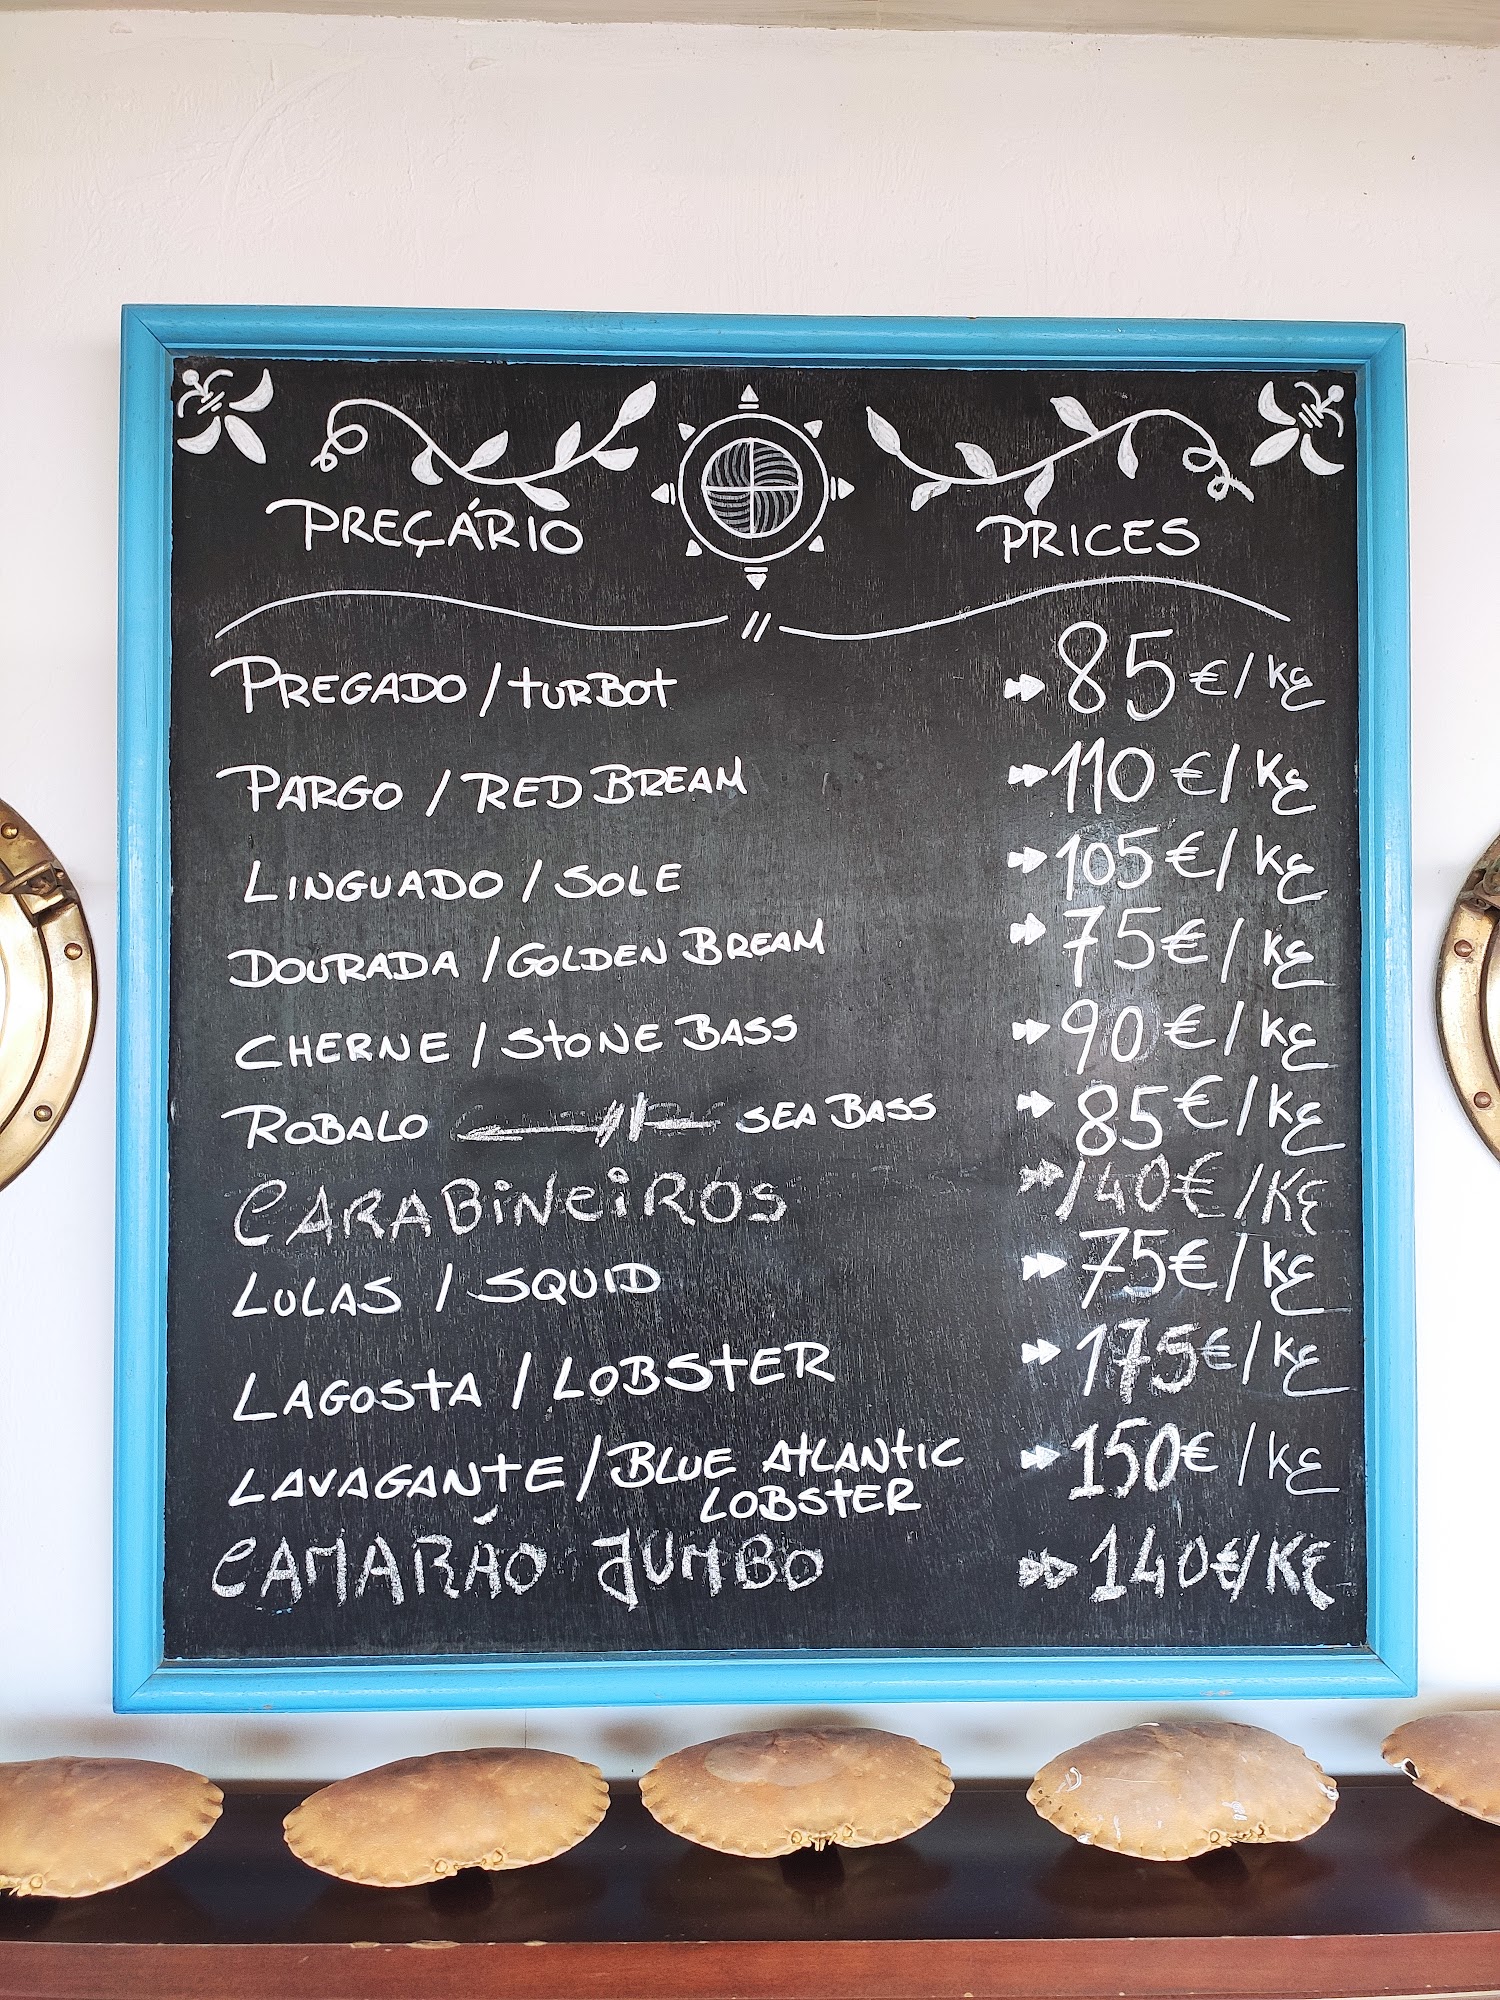 PREÇÁRIO PRICES
PREGADO / TURBOT 85 € / KG
PARGO / RED BREAM 110 € / KG
LINGUADO / SOLE 105 € / KG
DOURADA / GOLDEN BREAM 75 € / KG
CHERNE / STONE BASS 90 € / KG
ROBALO SEA BASS 85 € / KG
CARABINEIROS 140 € / KG
LULAS / SQUID 75 € / KG
LAGOSTA / LOBSTER 175 € / KG
LAVAGANTE / BLUE ATLANTIC 150 € / KG
LOBSTER
CAMARÃO JUMBO 140 € / KG